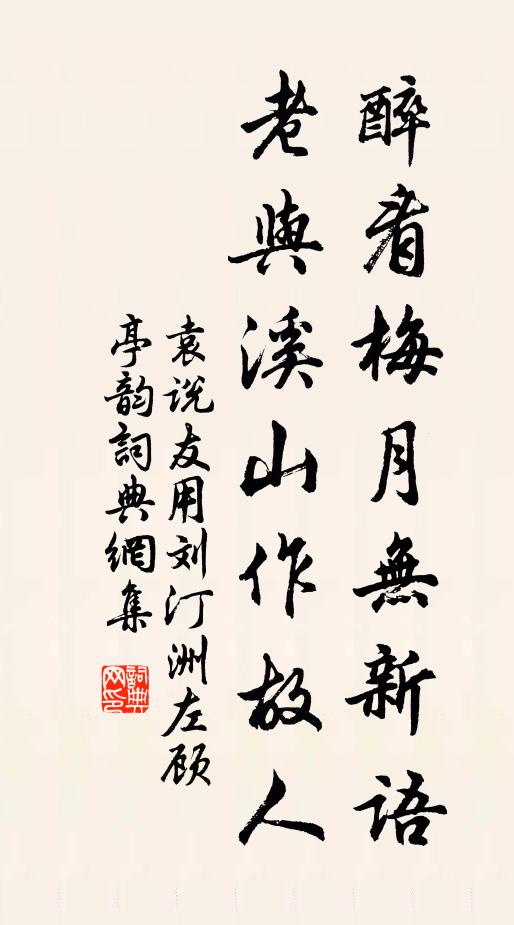 醉看梅月無新語
老與溪山作故人
袁说友用刘汀洲左顾
亭韵詞典網集
詞典網印